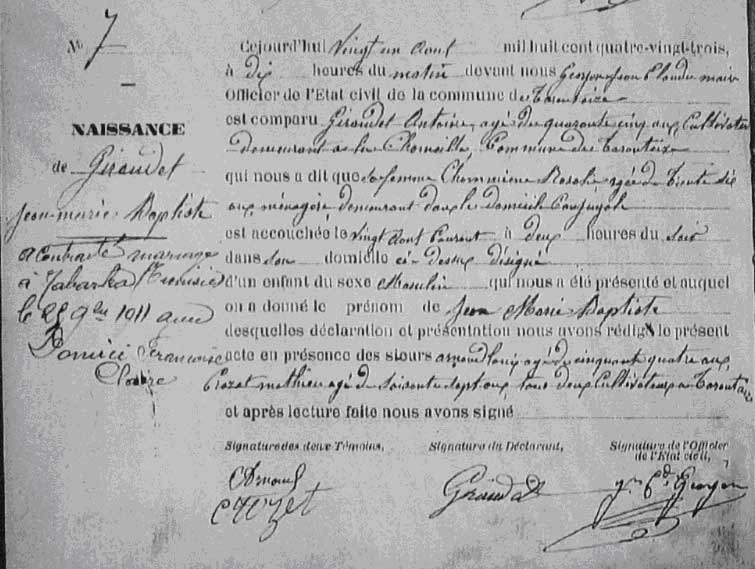 N° 7
NAISSANCE
de Giraudet
Jean-marie Baptiste
a contracté mariage
à Tabarka (Tunisie)
le 28 9bre 1911 avec
Françoise
Cejourd'hui Vingt un Aout mil huit cent quatre-vingt-trois,
à dix heures du matin devant nous Jean Claude maire
Officier de l'Etat civil de la commune de Tarentaise
est comparu Giraudet Antoine, agé de quarante cinq ans Cultivateur
demeurant a Commune de Tarentaise
qui nous a dit que sa femme Rosalie agée de Trente six
ans ménagère demeurant dans le domicile Conjugale
est accouchée le Vingt Aout Courant à deux heures du Soir
dans son domicile ci-dessus désigné
d'un enfant du sexe Masculin qui nous a été présenté et auquel
on a donné le prénom de Jean Marie Baptiste
desquelles déclaration et présentation nous avons rédigé le présent
acte en présence des sieurs agé de cinquante quatre ans
mathieu agé de soixante sept ans, tous deux Cultivateurs a Tarentaise
et après lecture faite nous avons signé
Signature des deux Témoins, Signature du Déclarant, Signature de l'Officier
de l'Etat civil,
Giraudet